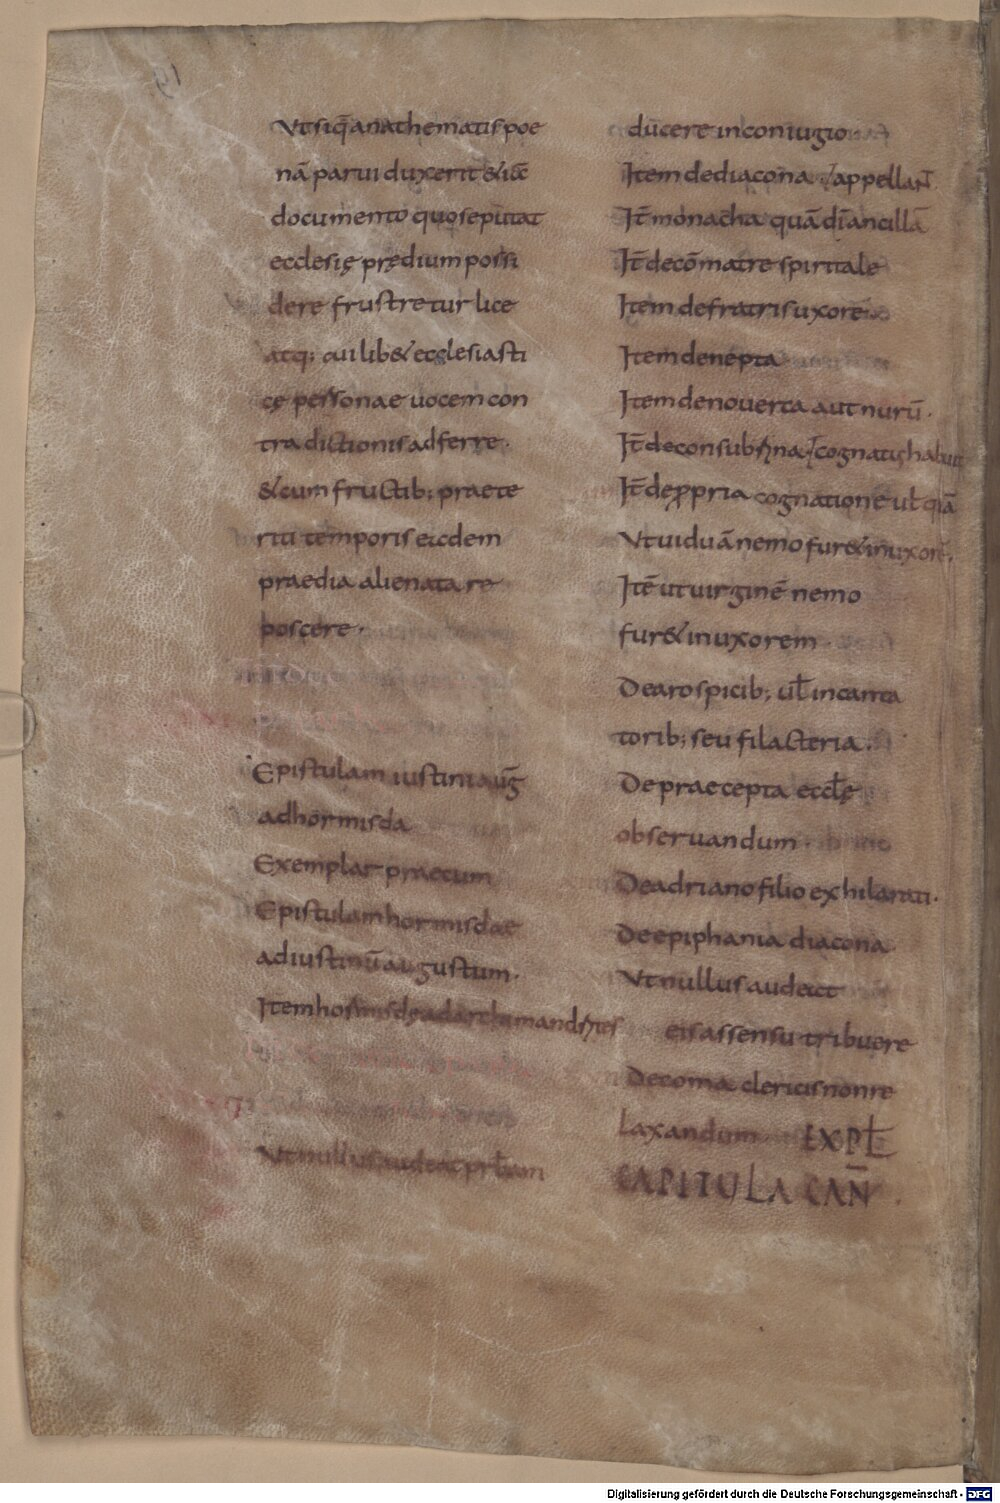 Ut siq̄ anathematis poe
nā parui duxerit & iūc
documento quo se putat
ecclesię prędium possi
dere frustretur lice
atq; cuilib& ecclesiasti
cę personae uocem con
tradictionis adferre·
& cum fructib; praete
riti temporis eiecdem
praedia alienata re
poscere·
Epistulam iustini aug̅
ad hormisda
Exemplar praecum
Epistulam hormisdae
ad iustinū augustum·
Item
Ut nullus audeat
ducere in coniugio
Item de diacona appellaN̄
It̄ monacha quā dī ancillā
It̄ decōmatre spiritale
Item de fratris uxore
Item denepta
Item denouerca aut nurū·
It̄ de cognatis habuit
It̄ de ꝓpria cognatione ul̄ quā
Ut uiduā nemo fur& in uxorē·
Itē ut uirginē nemo
fur& in uxorem
De arospicib; ul̄ incanta
torib; seu filacteria·
De praecepta eccl̄ę
obseruandum·
De adriano filio exhilarati·
De epiphania diacona
Ut nullus audeat
eis assensu tribuere
De coma clericis non re
laxandum EXPL̄
CAPITULA CAN̄
Digitalisierung gefördert durch die Deutsche Forschungsgemeinschaft - DFG